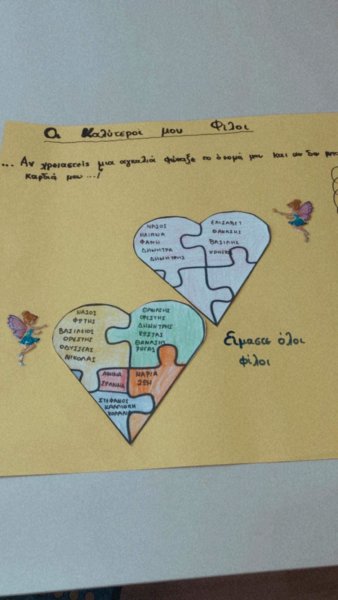 Οι Καλύτεροι μου Φίλοι
... Αν χρειαστείς μια αγκαλιά φώναξε το όνομά μου και αν δεν
καρδιά μου ...!
ΝΑΣΟΣ
ΗΛΙΑΝΑ
ΦΑΝΗ
ΔΗΜΗΤΡΑ
ΔΗΜΗΤΡΗΣ
ΕΛΙΣΑΒΕΤ
ΘΑΝΑΣΗΣ
ΒΑΣΙΛΗΣ
ΧΡΗΣΤΟΣ
ΝΑΣΟΣ
ΦΩΤΗΣ
ΒΑΣΙΛΕΙΟΣ
ΟΡΕΣΤΗΣ
ΟΔΥΣΣΕΑΣ
ΝΙΚΟΛΑΣ
ΘΑΝΑΣΗΣ
ΟΡΕΣΤΗΣ
ΔΗΜΗΤΡΗΣ
ΚΩΣΤΑΣ
ΘΑΝΑΣΗΣ
ΡΗΓΑΣ
ΑΘΗΝΑ
ΙΩΑΝΝΑ
ΜΑΡΙΑ
ΖΩΗ
ΣΤΕΦΑΝΟΣ
ΚΑΛΛΙΟΠΗ
Είμαστε όλοι
φίλοι